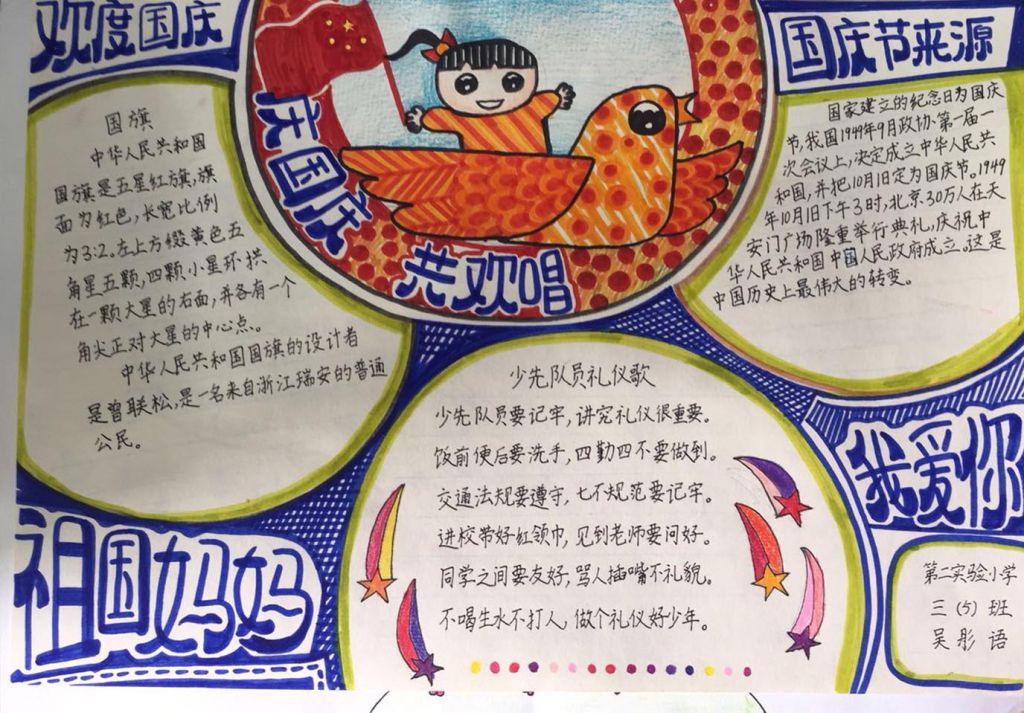 欢度国庆
国旗
中华人民共和国
国旗是五星红旗,旗
面为红色,长宽比例
为3:2。左上方缀黄色五
角星五颗,四颗小星环拱
在一颗大星的右面,并各有一个
角尖正对大星的中心点。
中华人民共和国国旗的设计者
是曾联松,是一名来自浙江瑞安的普通
公民。
庆国庆
共欢唱
国庆节来源
国家建立的纪念日为国庆
节,我国1949年9月政协·第一届一
次会议上,决定成立中华人民共
和国,并把10月1日定为国庆节。1949
年10月1日下午3时,北京30万人在天
安门广场隆重举行典礼,庆祝中
华人民共和国中国人民政府成立。这是
中国历史上最伟大的转变。
少先队员礼仪歌
少先队员要记牢,讲究礼仪很重要。
饭前便后要洗手,四勤四不要做到。
交通法规要遵守,七不规范要记牢。
进校带好红领巾,见到老师要问好。
同学之间要友好,骂人插嘴不礼貌。
不喝生水不打人,做个礼仪好少年。
我爱你
祖国妈妈
第二实验小学
三(5)班
吴彤语